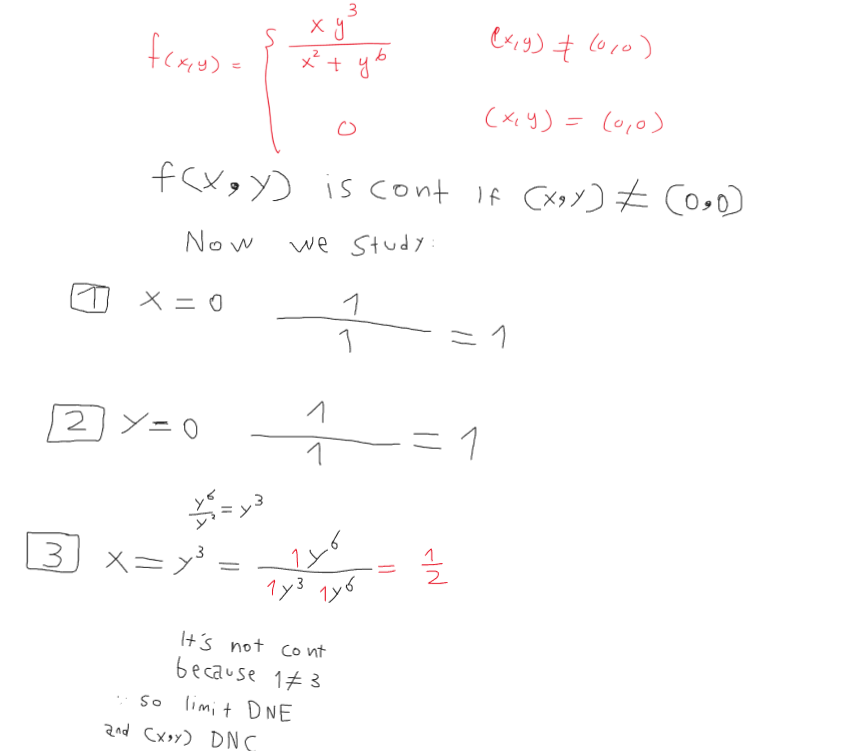 f(x,y) = { xy³ / x² + y⁶   (x,y) ≠ (0,0)
0   (x,y) = (0,0)
f(x,y) is cont if (x,y) ≠ (0,0)
Now we study:
1 x = 0 1/1 = 1
2 y = 0 1/1 = 1
y⁶/y³ = y³
3 x = y³ = 1y⁶ / 1y³ 1y⁶ = 1/2
It's not cont
because 1 ≠ 3
so limit DNE
and (x,y) DNC